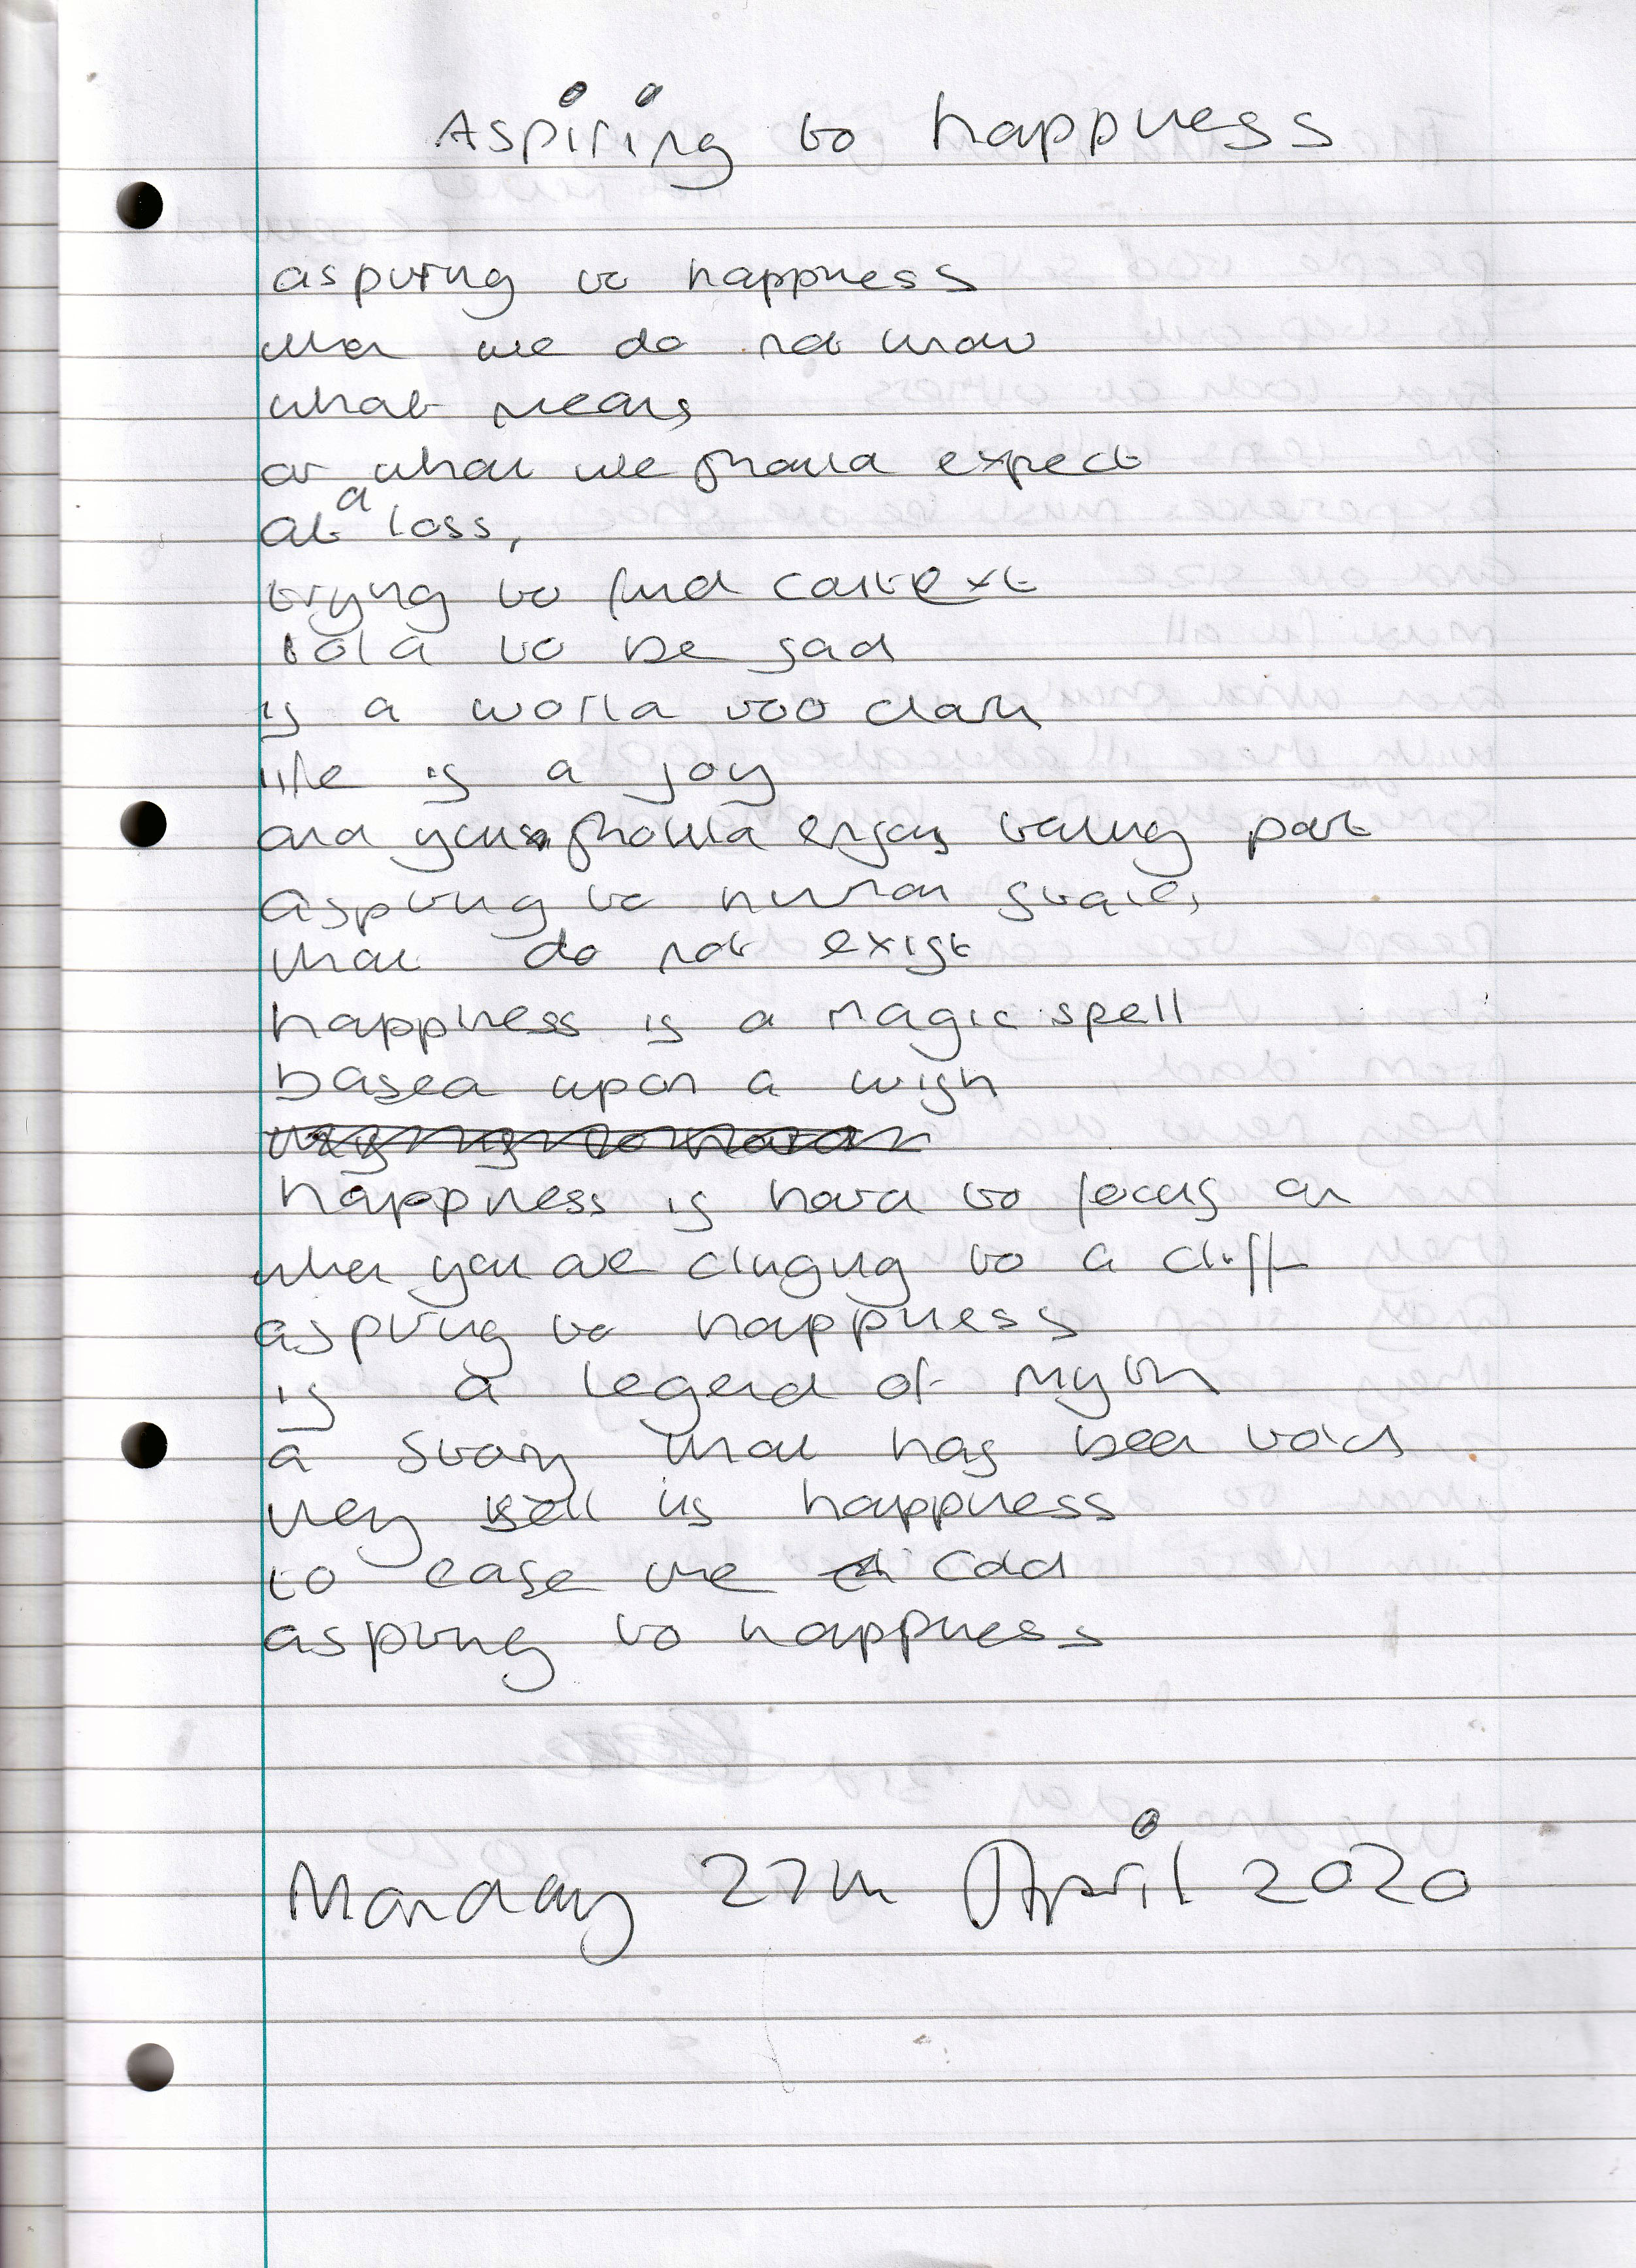 Aspiring to happiness
aspiring to happiness
when we do not know
what means
or what we should expect
at a loss,
trying to find context
told to be sad
is a world too dark
life is a joy
and you should enjoy taking part
aspiring to human states
that do not exist
happiness is a magic spell
based upon a wish
happiness is hard to focus on
when you are clinging to a cliff
aspiring to happiness
is a legend of myth
a story that has been told
they sell us happiness
to ease the cold
aspiring to happiness
Monday 27th April 2020